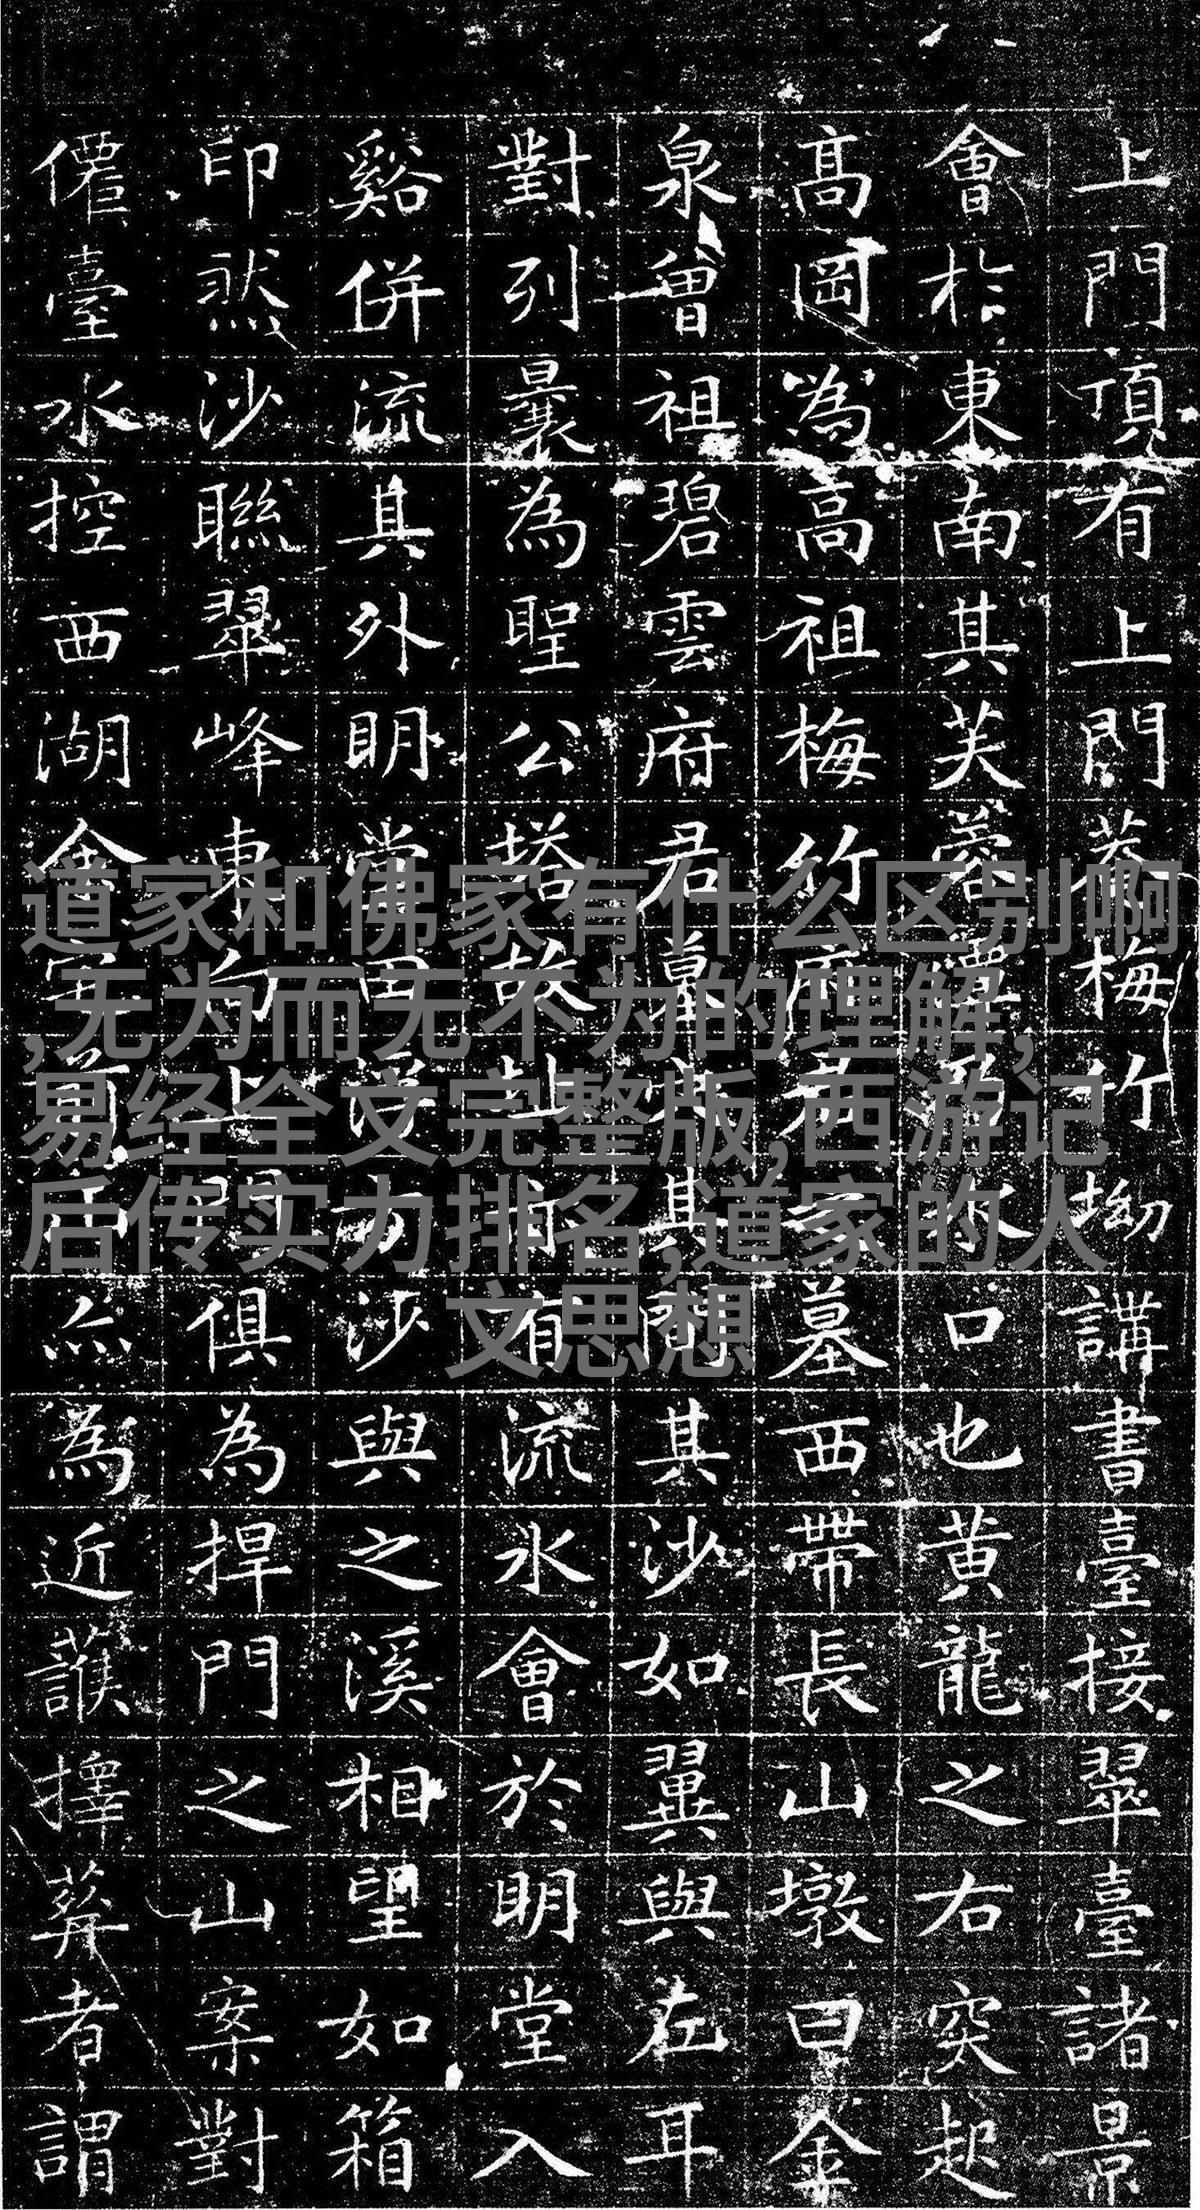 上門頂有上門茶梅竹坳講書臺接翠臺諸景
會扵東南其芙蓉潭水口也黃龍之右突起
高岡為高祖梅竹府君之墓西帶長山墩曰金
泉曾祖碧雲府君墓其間其沙如翼與左耳
對列曩為聖公塔故址有流水會於明堂入
谿併流其外明堂田洋方沙與之溪相望如箱
印然沙聯翠峰東向上門俱為捍門之山案對
僊臺水控西湖會案前亦為近護擇葬者謂
道家和佛家有什么区别啊
,无为而无不为的理解,
易经全文完整版,西游记
后传实力排名,道家的人
文思想